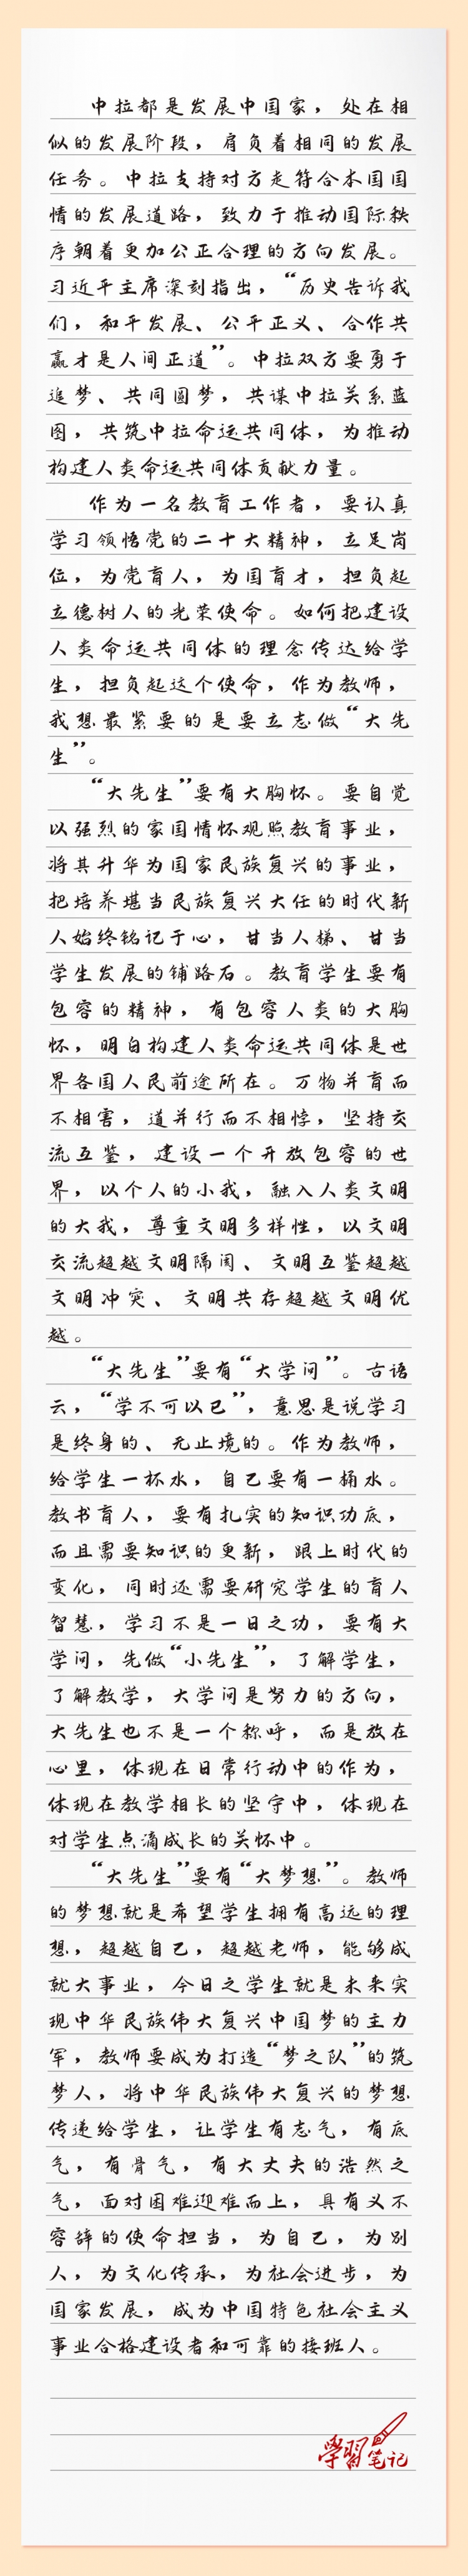 中拉都是发展中国家，处在相
似的发展阶段，肩负着相同的发展
任务。中拉支持对方走符合本国国
情的发展道路，致力于推动国际秩
序朝着更加公正合理的方向发展。
习近平主席深刻指出，“历史告诉我
们，和平发展、公平正义、合作共
赢才是人间正道”。中拉双方要勇于
追梦、共同圆梦，共谋中拉关系蓝
图，共筑中拉命运共同体，为推动
构建人类命运共同体贡献力量。
作为一名教育工作者，要认真
学习领悟党的二十大精神，立足岗
位，为党育人，为国育才，担负起
立德树人的光荣使命。如何把建设
人类命运共同体的理念传达给学
生，担负起这个使命，作为教师，
我想最紧要的是要立志做“大先
生”。
“大先生”要有大胸怀。要自觉
以强烈的家国情怀观照教育事业，
将其升华为国家民族复兴的事业，
把培养堪当民族复兴大任的时代新
人始终铭记于心，甘当人梯、甘当
学生发展的铺路石。教育学生要有
包容的精神，有包容人类的大胸
怀，明白构建人类命运共同体是世
界各国人民前途所在。万物并育而
不相害，道并行而不相悖，坚持交
流互鉴，建设一个开放包容的世
界，以个人的小我，融入人类文明
的大我，尊重文明多样性，以文明
交流超越文明隔阂、文明互鉴超越
文明冲突、文明共存超越文明优
越。
“大先生”要有“大学问”。古语
云，“学不可以已”，意思是说学习
是终身的、无止境的。作为教师，
给学生一杯水，自己要有一桶水。
教书育人，要有扎实的知识功底，
而且需要知识的更新，跟上时代的
变化，同时还需要研究学生的育人
智慧，学习不是一日之功，要有大
学问，先做“小先生”，了解学生，
了解教学，大学问是努力的方向，
大先生也不是一个称呼，而是放在
心里，体现在日常行动中的作为，
体现在教学相长的坚守中，体现在
对学生点滴成长的关怀中。
“大先生”要有“大梦想”。教师
的梦想就是希望学生拥有高远的理
想，超越自己，超越老师，能够成
就大事业，今日之学生就是未来实
现中华民族伟大复兴中国梦的主力
军，教师要成为打造“梦之队”的筑
梦人，将中华民族伟大复兴的梦想
传递给学生，让学生有志气，有底
气，有骨气，有大丈夫的浩然之
气，面对困难迎难而上，具有义不
容辞的使命担当，为自己，为别
人，为文化传承，为社会进步，为
国家发展，成为中国特色社会主义
事业合格建设者和可靠的接班人。
學習笔记